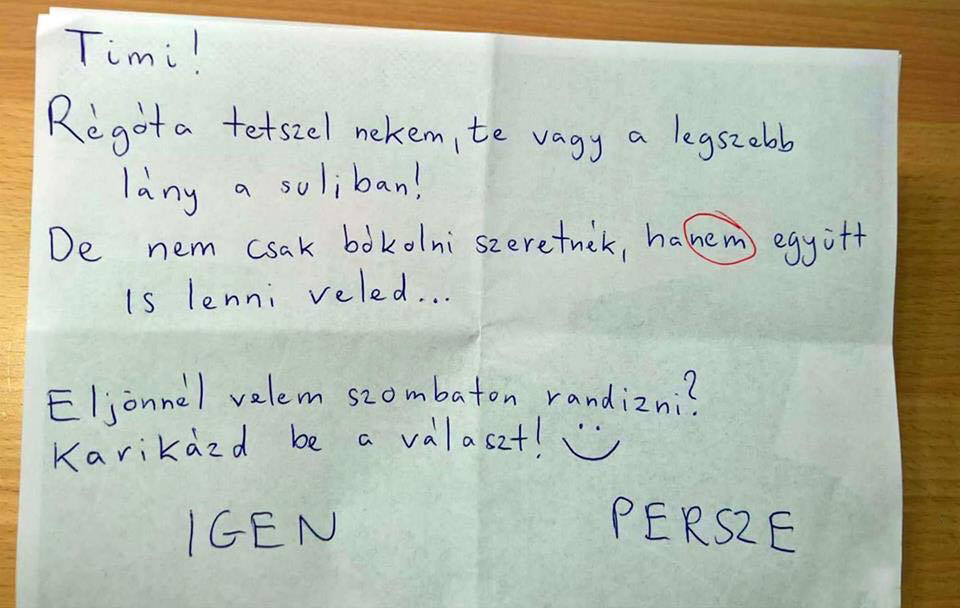 Timi!
Régóta tetszel nekem, te vagy a legszebb
lány a suliban!
De nem csak bókolni szeretnék, hanem együtt
is lenni veled...
Eljönnél velem szombaton randizni?
Karikázd be a választ!
IGEN PERSZE